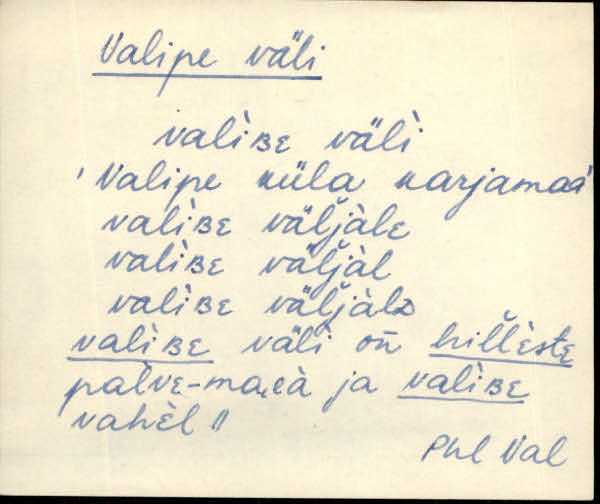 Valipe väli
valìʙe välì
'Valipe küla karjamaa'
valìʙe väljàle
valìʙe väljàl
valìʙe väljàlᴅ
valìʙe väli on̄ hillèste
palve-maeà ja valìʙe
vahèl "
Phl Val